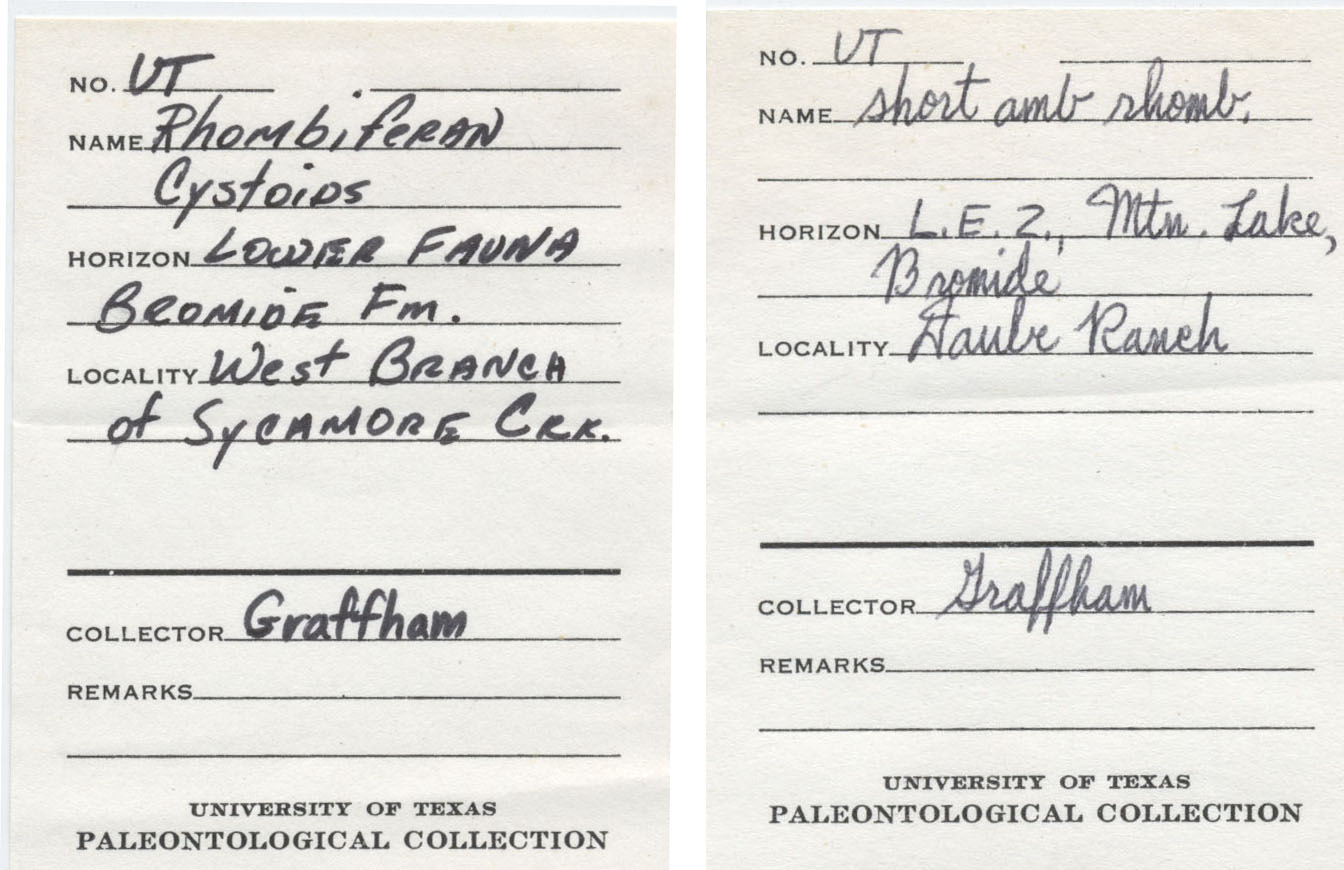 NO. UT
NAME Rhombiferan
Cystoids
HORIZON LOWER FAUNA
BROMIDE Fm.
LOCALITY West BRANCH
of SYCAMORE CRK.
COLLECTOR Graffham
REMARKS
UNIVERSITY OF TEXAS
PALEONTOLOGICAL COLLECTION
NO. UT
NAME short amb rhomb.
HORIZON L.E.Z., Mtn. Lake,
Bromide
LOCALITY Daube Ranch
COLLECTOR Graffham
REMARKS
UNIVERSITY OF TEXAS
PALEONTOLOGICAL COLLECTION